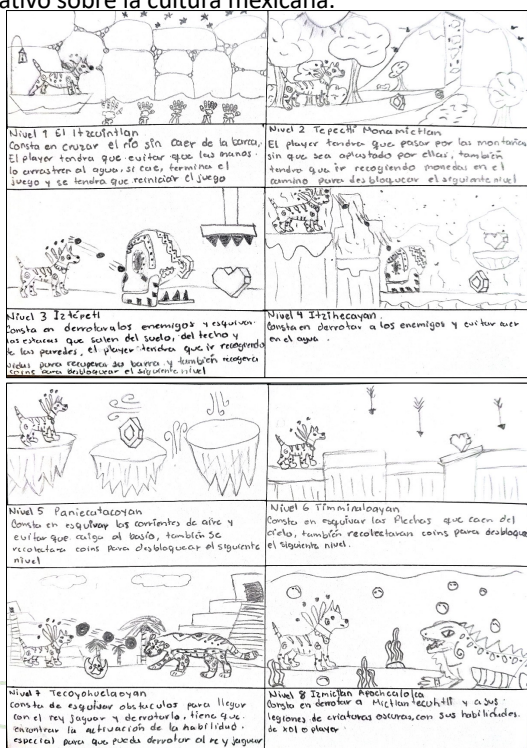 ativo sobre la cultura mexicana.
Nivel 1 El Itzcuintlan
Consta en cruzar el río sin caer de la barca,
El player tendra que evitar que las manos
lo arrastren al agua, si cae, termina el
juego y se tendra que reiniciar el juego
Nivel 2 Tepectli Monamictlan
El player tendra que pasar por las montañas
sin que sea aplastado por ellas, también
tendra que ir recogiendo monedas en el
camino para desbloquear el siguiente nivel
Nivel 3 Iztépetl
Consta en derrotar a los enemigos y esquivar
las estacas que salen del suelo, del techo y
de las paredes, el player tendra que ir recogiendo
vidas para recuperar su barra y también recogera
coins para desbloquear el siguiente nivel
Nivel 4 Itzihecayan.
Consta en derrotar a los enemigos y evitar caer
en el agua.
Nivel 5 Paniecatacoyan
Consta en esquivar las corrientes de aire y
evitar que caiga al basio, también se
recolectara coins para desbloquear el siguiente
nivel
Nivel 6 Timiminaloayan
Consta en esquivar las flechas que caen del
cielo, también recolectaran coins para desbloque
el siguiente nivel.
Nivel 7 Tecoyohuelaoyan
consta de esquivar obstaculos para llegar
con el rey jaguar y derrotarlo, tiene que
encontrar la activación de la habilidad
especial para que pueda derrotar al rey jaguar
Nivel 8 Izmictlan Apochcalolca
Consta en derrotar a Mictlantecuhtli y a sus
legiones de criaturas oscuras, con sus habilidades
de xol o player.